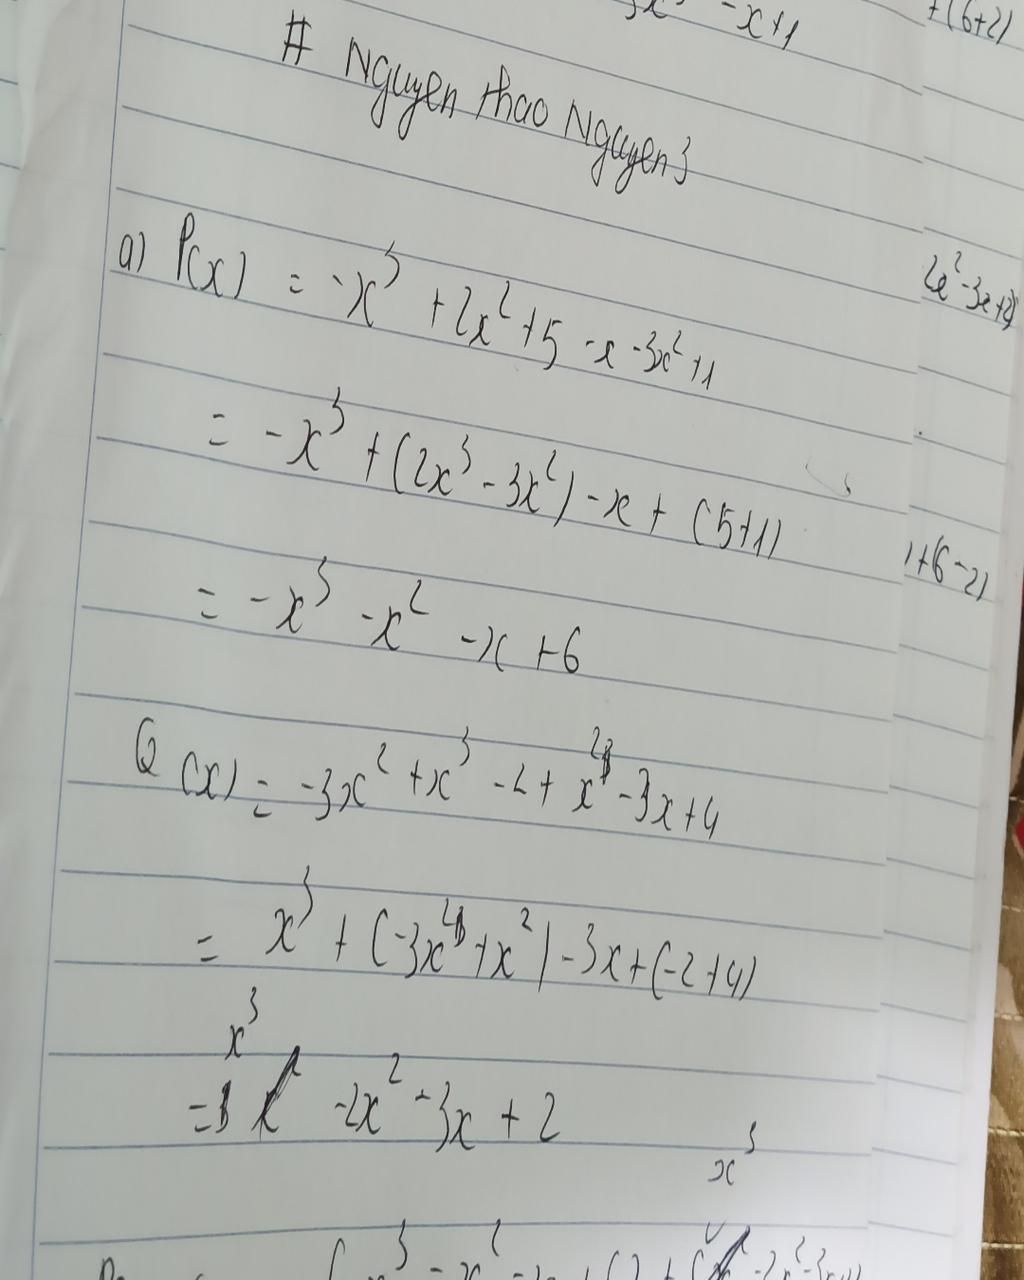 -x+1
+(6+2)
# Nguyen thao Nguyen3
a) P(x) = -x³ +2x²+5 -x -3x²+1
2x²-3x+2)
= -x³ +(2x³ -3x²) -x + (5+1)
)+(6-2)
= -x³ -x² -x +6
Q(x) = -3x² +x³ -2+ x² -3x+4
= x³ + (-3x² +x²) -3x+(-2+4)
x³
= -2x² -3x + 2
x³